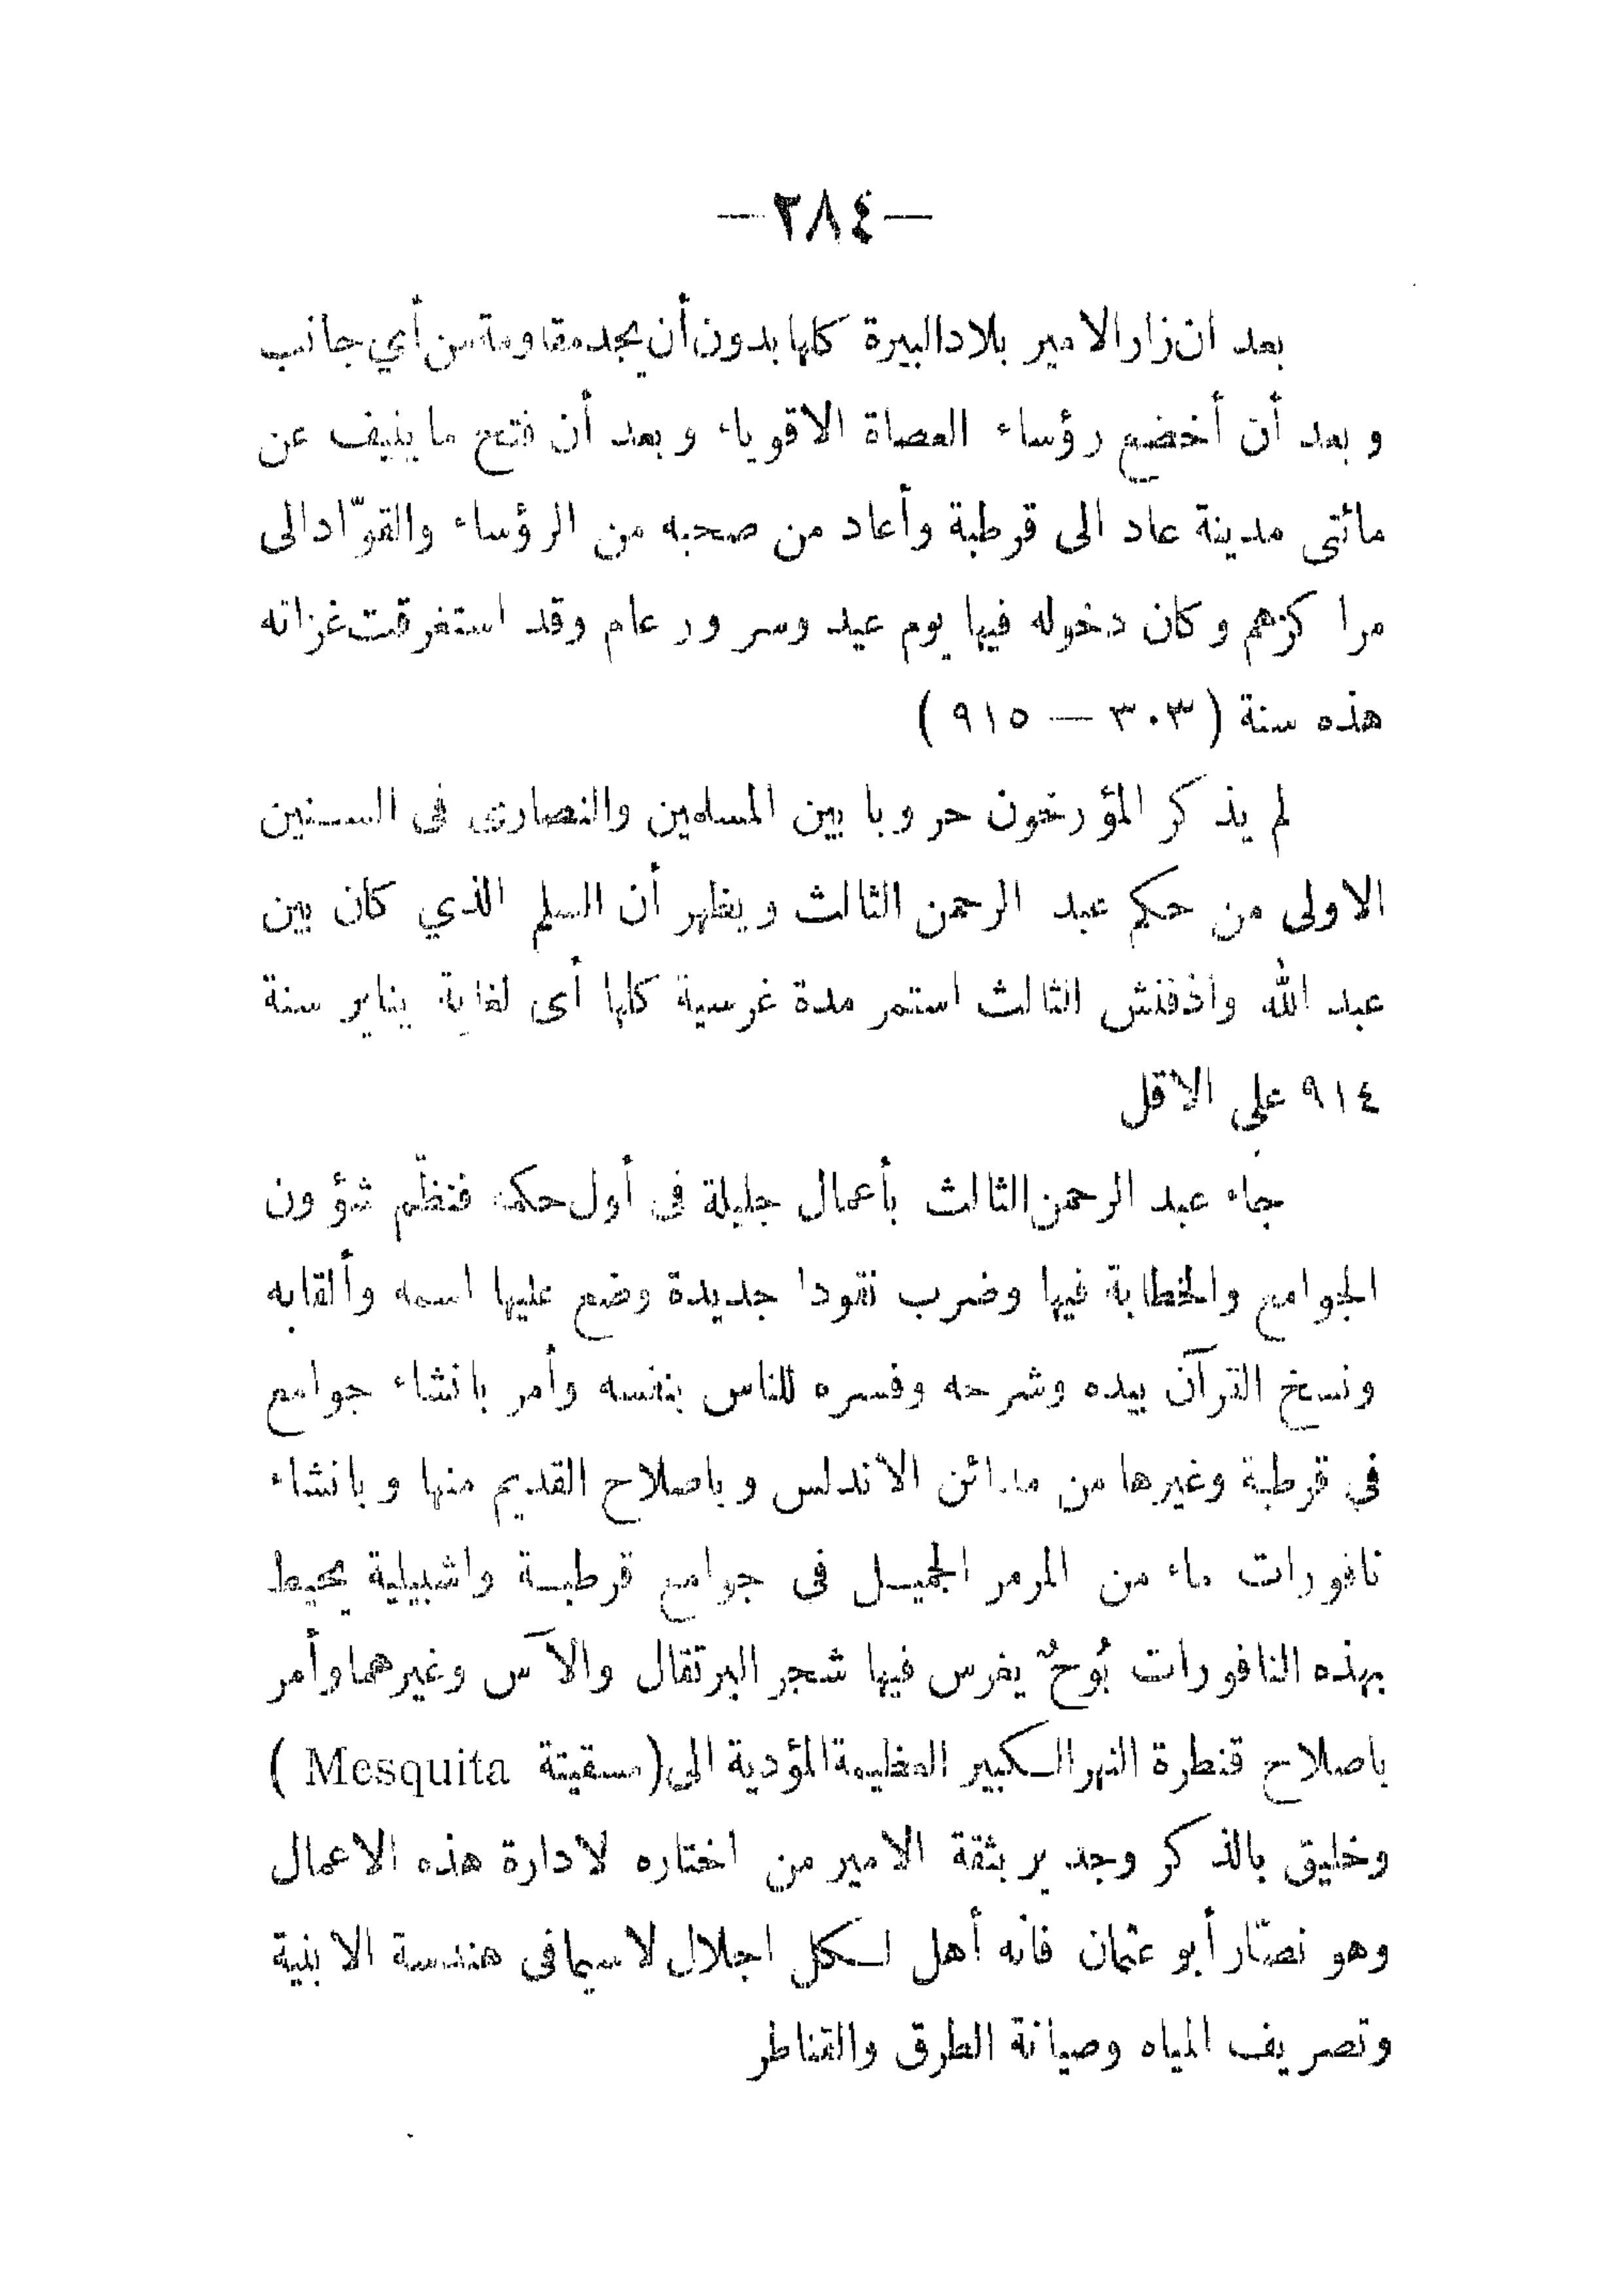 —٢٨٤—
بعد ان زار الامير بلاد البيرة كلها بدون أن يجد مقاومة من أي جانب
وبعد أن أخضع رؤساء العصاة الاقوياء وبعد أن فتح ما ينيف عن
مائتى مدينة عاد الى قرطبة وأعاد من صحبه من الرؤساء والقوّاد الى
مراكزهم وكان دخوله فيها يوم عيد وسرور عام وقد استغرقت غزاته
هذه سنة (٣٠٣ — ٩١٥)
لم يذكر المؤرخون حروبا بين المسلمين والنصارى فى السنين
الاولى من حكم عبد الرحمن الثالث ويظهر أن السلم الذي كان بين
عبد الله واذفنش الثالث استمر مدة غرسية كلها أى لغاية يناير سنة
٩١٤ على الاقل
جاء عبد الرحمن الثالث بأعمال جليلة فى أول حكمه فنظّم شؤون
الجوامع والخطابة فيها وضرب نقودا جديدة وضع عليها اسمه وألقابه
ونسخ القرآن بيده وشرحه وفسره للناس بنفسه وأمر بانشاء جوامع
في قرطبة وغيرها من مدائن الاندلس وباصلاح القديم منها وبانشاء
نافورات ماء من المرمر الجميل فى جوامع قرطبة واشبيلية يحيط
بهذه النافورات بُوحٌ يغرس فيها شجر البرتقال والآس وغيرهما وأمر
باصلاح قنطرة النهر الكبير العظيمة المؤدية الى (مسقيتة Mesquita)
وخليق بالذكر وجدير بثقة الامير من اختاره لادارة هذه الاعمال
وهو نصّار أبو عثمان فانه أهل لكل اجلال لاسيما فى هندسة الابنية
وتصريف المياه وصيانة الطرق والقناطر